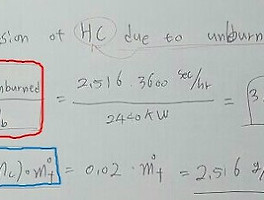 sion of HC due to unburn
nburned = 2,516 . 3600 sec/hr / 2440 KW = 3.
b
nc) . ṁf = 0,02 . ṁf = 2,516 g/